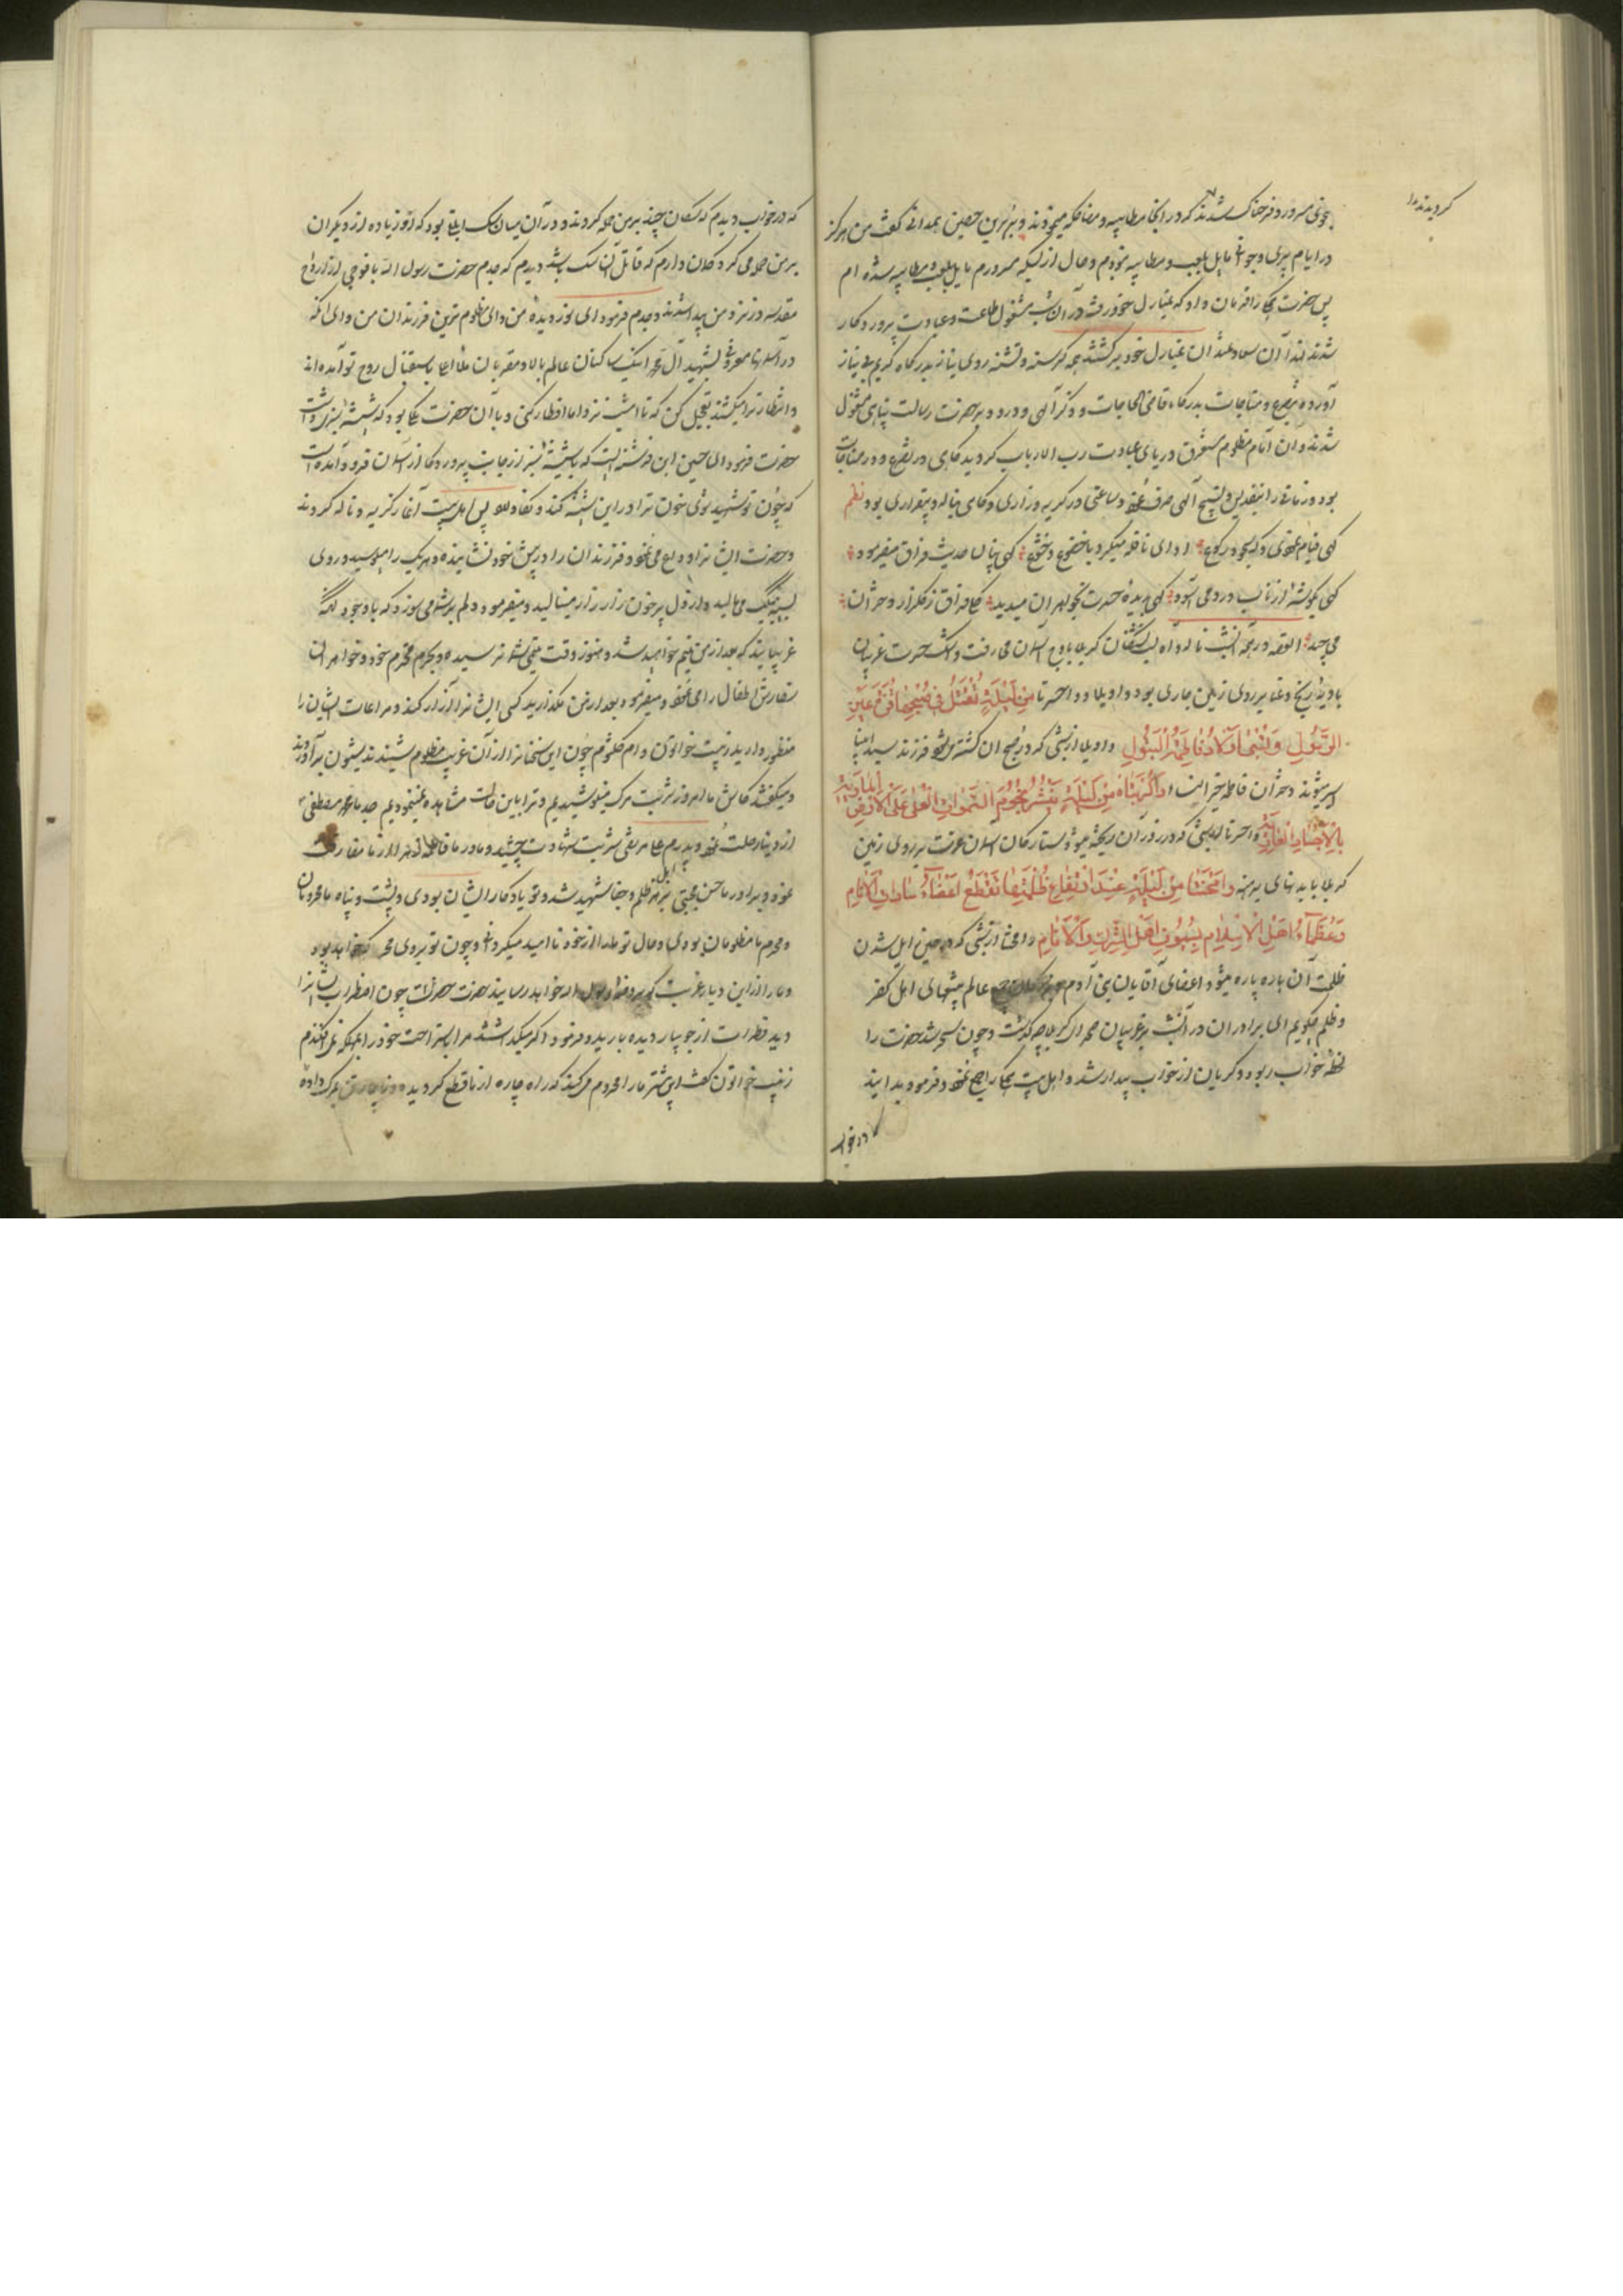 گردیدند
بنوعی مسرور و فرحناک شدند که در انجا مطایبه و مضاحکه مینمودند و بریر بن حصین همدانی گفت من هرگز
در ایام پیری و جوانی مایل بلعب و مطایبه نبودم و حال از بسکه مسرورم مایل بلعب و مطایبه شده ام
پس حضرت همکی را فرمان داد که بمنازل خود رفته در آن شب مشغول طاعت و عبادت پروردکار
شدند لهذا آن سعادتمندان بمنازل خود برکشتند همه کرسنه و تشنه روی نیاز بدرکاه کریم بی نیاز
آورده بتضرع و مناجات بدرکاه قاضی الحاجات و ذکر آلهی و درود بر حضرت رسالت پناهی مشغول
شدند و ان امام مظلوم مستغرق دریای عبادت رب الارباب کردید کاهی در تضرع و در مناجات
بود و زمانی را بتقدیس و تسبیح آلهی صرف نمود و ساعتی در کریه و زاری و کاهی بناله و بیقراری بود نظم
کهی قیام نمودی و کهی سجود و رکوع ادای نافله میکرد با خضوع و خشوع کهی پنهان حدیث فراق میفرمود
کهی بدیده حسرت بخواهران میدید
می چید القصه در همه آنشب ناله و آه لب تشنکان کربلا باوج آسمان می رفت و اشک حسرت غریبان
بادیه رنج و عنا بر روی زمین جاری بود واویلا و واحسرتا من لیلة تقتل فی صبحها قرة عین
الرسول و تسبی اولاد فاطمة البتول واویلا از شبی که در صبح ان کشته میشود فرزند سید انبیا
اسیر شوند دختران فاطمه خیر النسا واکربتاه من لیلة ینثر نجوم السموات العلی علی الارض
بالاجساد العاریة واحسرتا از شبی که در روز آن ریخته میشود ستارکان آسمان عزت بر روی زمین
کربلا با بدنهای برهنه وامحنتا من لیلة عند انقلاع ظلمتها تقطع اعضاء سادات الانام
و عظماء اهل الاسلام بسیوف اهل الشرک و الآثام وامحنتا از شبی که در حین زایل شدن
ظلمت آن پاره پاره میشود اعضای آقایان بنی آدم عالم بتیغهای اهل کفر
و ظلم چکویم ای برادران در آنشب بر غریبان صحرای کربلا چه کذشت و چون سحر شد حضرت را
لحظه خواب ربود و کریان از خواب بیدار شد و اهل بیت همکی را جمع نمود و فرمود بدانید
که در خواب دیدم که سکان چند بر من حمله کردند و در آن میان سک ابلقی بود که او زیاده از دیکران
بر من حمله می کرد و کمان دارم که قاتل آن سک باشد دیدم که جدم حضرت رسول الله با فوجی از ارواح
مقدسه در نزد من پیدا شدند و جدم فرمود ای نور دیده من و ای مظلوم ترین فرزندان من و ای انکه
در آسمانها معروفی بشهید آل محمد اینک ساکنان عالم بالا و مقربان ملأ اعلا باستقبال روح تو آمده اند
و انتظار ترا میکشند تعجیل کن که تا امشب نزد ما افطار کنی و با آن حضرت ملکی بود که شیشه سبز داشت
حضرت فرمود ای حسین این فرشته ایست که با شیشه سبز از جانب پروردکار از آسمان فرود آمده است
که چون تو شهید شوی خون ترا در این شیشه کند و نکاه دارد پس اهل بیت آغاز کریه و ناله کردند
و حضرت ایشانرا وداع می نمود و فرزندان را در پیش خود نشانیده و هر یک را میبوسید و روی
بسینه هریک می مالید و از دل پرخون زار زار مینالید و میفرمود دلم بر شما می سوزد که با وجود آنکه
غریبانید که بعد از من یتیم خواهید شد و هنوز وقت یتیمی شما نرسیده و بحرم محترم خود و خواهران
سفارش اطفال را می نمود و میفرمود بعد از من مکذارید کسی ایشانرا آزار کند و مراعات ایشان را
منظور دارید زینب خواتون و ام کلثوم چون این سخنانرا از آن غریب مظلوم شنیدند شیون برآوردند
و میکفتند کاش ما امروز شربت مرک مینوشیدیم و ترا باین حالت مشاهده نمینمودیم جد ما محمد مصطفی
از دنیا رحلت نمود و پدرم علی مرتضی شربت شهادت چشید و مادر ما فاطمه زهرا از ما مفارقت
نمود و برادر ما حسن مجتبی بزهر ظلم و جفا شهید شد و تو یادکار ایشان بودی و پشت و پناه ما محرومان
و محرم ما مظلومان بودی و حال تو ما را از خود ناامید میکردانی و چون تو بروی محرم که خواهد بود
و ما را از این دیار غربت که بروضه رسول الله خواهد رسانید حضرت چون اضطراب ایشانرا
دید قطرات از جویبار دیده بارید و فرمود اکر میکذاشتند مرا باستراحت خود را بمهلکه نمی افکندم
زینب خواتون کفت این بیشتر ما را محروم میکند که راه چاره از ما قطع کردیده و ناچار تن بمرک داده
در خواب